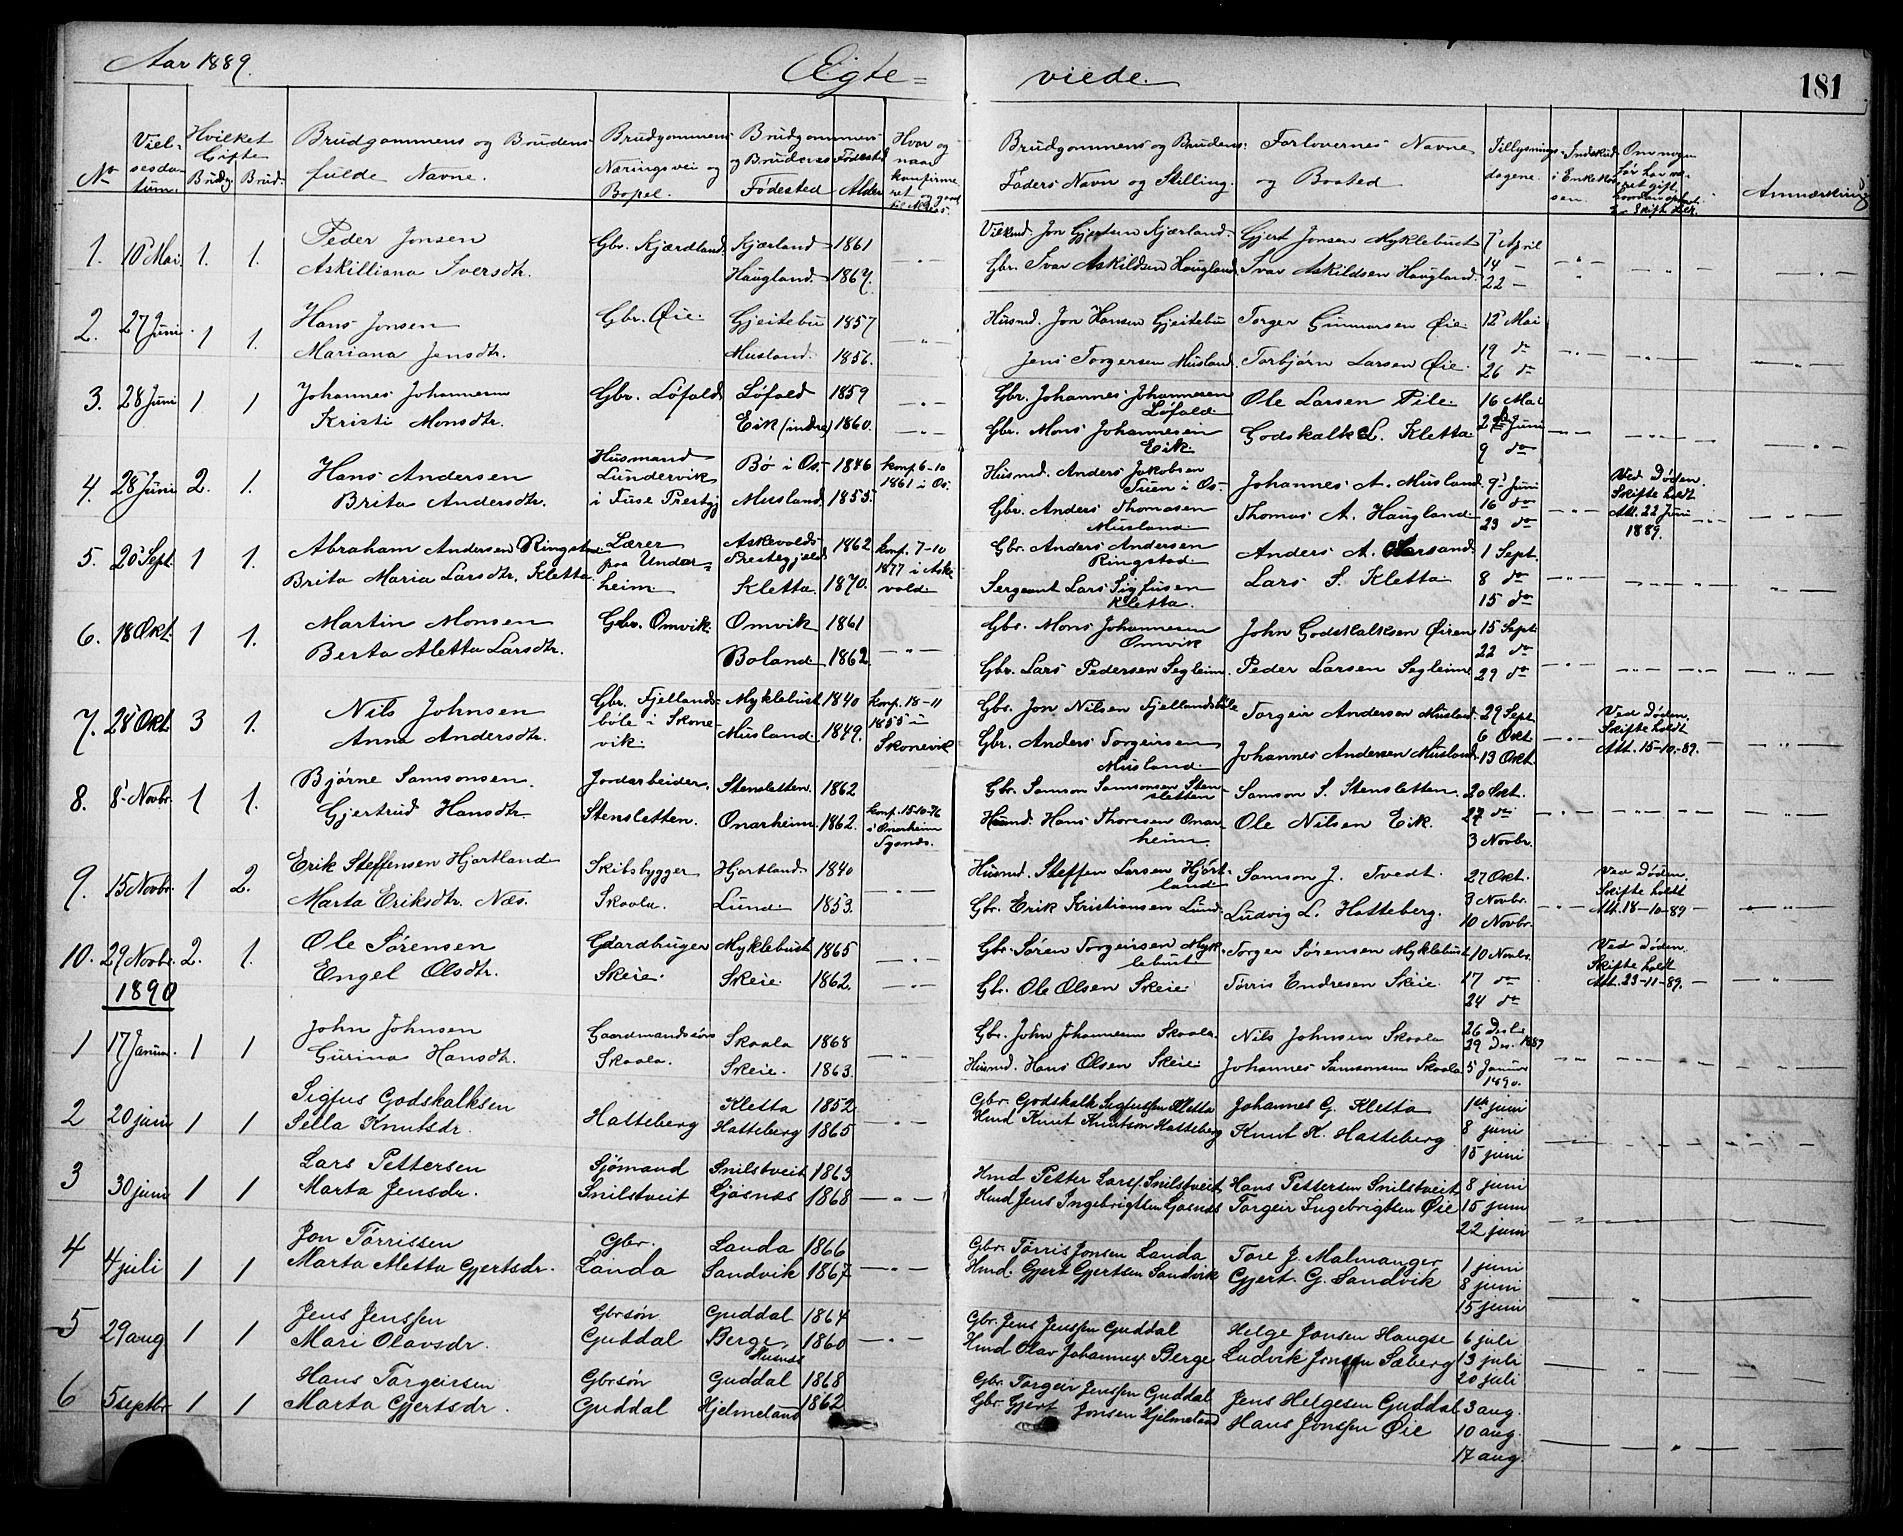 Aar 1889.
Ægte=
viede.
181
No
Vielsesdatum.
Hvilket Gifte
Brudg. Brud.
Brudgommens og Brudens fulde Navne.
Brudgommens Næringsvei og Bopel.
Brudgommens og Brudenes Fødested
Fødested Alder
Hvor og naar konfirmeret
Brudgommens og Brudens Faders Navn og Stilling.
Forlovernes Navne og Bosted
Tillysnings dagene.
Indskud i Enkekassen.
Om nogen før har været gift,
Anmærkning
1. 10' Mai. 1. 1. Peder Jonsen Gbr. Kjærdland. Kjærland 1861 — " — Vilkmd. Jon Gjertsen Kjærland. Gjert Jonsen Myklebust 7' April
Askilliana Iversdtr. Haugland 1867. Gbr. Ivar Askildsen Haugland. Ivar Askildsen Haugland. 14 —
22 —
2. 27' Juni. 1 1. Hans Jonsen Gbr. Øie. Gjeitebu 1857 — " — Husmd. Jon Hansen Gjeitebu Torger Gunnarsen Øie 12' Mai
Mariana Jensdtr. Musland. 1856. Jens Torgersen Musland. Torbjørn Larsen Øie. 19 do
26 do
3. 28 Juni 1 1 Johannes Johannesen Gbr. Løfald Løfald 1859 — " — Gbr. Johannes Johannesen Løfald Ole Larsen Pile 16 Mai
Kristi Monsdtr. Eik (indre) 1860. — " — Gbr. Mons Johannesen Eik Godskalk L. Kletta 2 Juni
9 do
4. 28' Juni 2. 1. Hans Andersen Husmand Lundervik i Fuse Prestgj Bø i Os. 1846 konf. 6-10 1861 i Os. Husmd. Anders Jakobsen Tuen i Os Johannes A. Musland. 9' Juni Ved Døden. Skifte holdt Att. 22 Juni 1889.
Brita Andersdtr. Musland. 1855. Gbr. Anders Thomasen Musland Thomas A. Haugland 16 do
23 do
5. 20' Sept. 1 1. Abraham Andersen Ringstad Lærer paa Undarheim Askevolds Prestegjeld 1862 konf. 7-10 1877 i Askevold Gbr. Anders Andersen Ringstad Anders A. Aarsand. 1 Sept.
Brita Maria Larsdtr. Kletta. Kletta 1870. Sergeant Lars Sigfusen Kletta. Lars S. Kletta 8 do
15 do
6. 18' Okt. 1 1. Martin Monsen Gbr. Omvik. Omvik 1861 — " — Gbr. Mons Johannesen Omvik John Godskalksen Øiren 15 Sept
Berta Aletta Larsdtr. Boland 1862. Gbr. Lars Pedersen Segleim Peder Larsen Segleim 22 do
29 do
7. 28' Okt. 3 1. Nils Johnsen Gbr. Fjellandsbøle i Skonevik. Myklebust 1840 konf. 18-11 1855 i Skonevik Gbr. Jon Nilsen Fjellandsbøle Torgeir Andersen Musland. 29 Sept. Ved Døden. Skifte holdt Att. 15-10-89.
Anna Andersdtr. Musland. 1849. Gbr. Anders Torgeirsen Musland. Johannes Andersen Musland. 6 Okt
13 Okt.
8. 8' Novbr. 1 1. Bjørne Samsonsen. Jordarbeider. Stensletten. 1862 Gbr. Samson Samsonsen Stensletten Samson S. Stensletten. 20 Okt.
Gjertrud Hansdtr. Stensletten. Onarheim. 1862. konf. 15-10-76 i Onarheim Tysnes. Husmd. Hans Thoresen Onarheim Ole Nilsen Eik. 27 do
3 Novbr.
9. 15 Novbr. 1 2. Erik Steffensen Hjortland Skibsbygger Hjortland 1840 — " — Husmd. Steffen Larsen Hjortland Samson J. Tvedt. 27 Okt. Ved Døden. Skifte holdt Att. 18-10-89
Marta Eriksdtr. Næs. Skaala. Lund. 1853. Gbr. Erik Kristiansen Lund. Ludvig L. Hatteberg. 3 Novbr.
10 Novbr.
10. 29 Novbr. 2. 1. Ole Sørensen Gaardbruger Myklebust 1865 — " — Gbr. Søren Torgeirsen Myklebust Torger Sørensen Myklebust 10 Novbr. Ved Døden. Skifte holdt Att. 23-11-89.
Engel Olsdtr. Skeie. Skeie. 1862. — " — Gbr. Ole Olsen Skeie. Tørris Endresen Skeie. 17 do
24 do
1890
1 17' Januar. 1 1 John Johnsen Gaardmandssøn Skaala 1868 Gbr. John Johannesen Skaala Nils Johnsen Skaala 26 Desbr
Gurina Hansdtr. Skaala. Skeie. 1863. — " — Husmd. Hans Olsen Skeie Johannes Samsonsen Skaala 29 Des. 1889
5 Januar 1890.
2 20 juni 1 1 Sigfus Godskalksen Hatteberg Kletta 1852 — " — Gbr. Godskalk Sigfussen Kletta Johannes G. Kletta 1ste juni
Sella Knutsdr. Hatteberg 1865 Hmd Knut Knutson Hatteberg Knut K. Hatteberg 8 juni
15 juni
3 30 juni 1 1 Lars Pettersen Sjømand Snilstveit 1863 — " — Hmd Petter Larss. Snilstveit Hans Pettersen Snilstveit 8 juni
Marta Jensdr. Snilstveit Gjøsnes 1868 Hmd Jens Ingebrigtsen Gøsnes Torgeir Ingebrigtsen Øie 15 juni
22 juni
4 4 juli 1 1 Jon Tørrissen Gbr. Landa 1866 — " — Gbr. Tørris Jonsen Landa Tore J. Malmanger 1 juni
Marta Aletta Gjertsdr. Landa Sandvik 1867 Hmd. Gjert Gjertsen Sandvik Gjert. G. Sandvik 8 juni
15 juni
5 29 aug 1 1 Jens Jenssen Gbrsøn Guddal 1864 — " — Gbr. Jens Jenssen Guddal Helge Jonsen Hauge 6 juli
Mari Olavsdr. Guddal Berge Husnes 1860 Hmd Olav Johanness Berge Ludvik Jonsen Sæberg 13 juli
20 juli
6 5 septbr 1 1 Hans Torgeirsen Gbrsøn Guddal 1868 Gbr. Torgeir Jenssen Guddal Jens Helgesen Guddal 3 aug.
Marta Gjertsdr. Guddal Hjelmeland 1862 Gbr. Gjert Jonsen Hjelmeland Hans Jonssen Øie 10 aug.
17 aug.